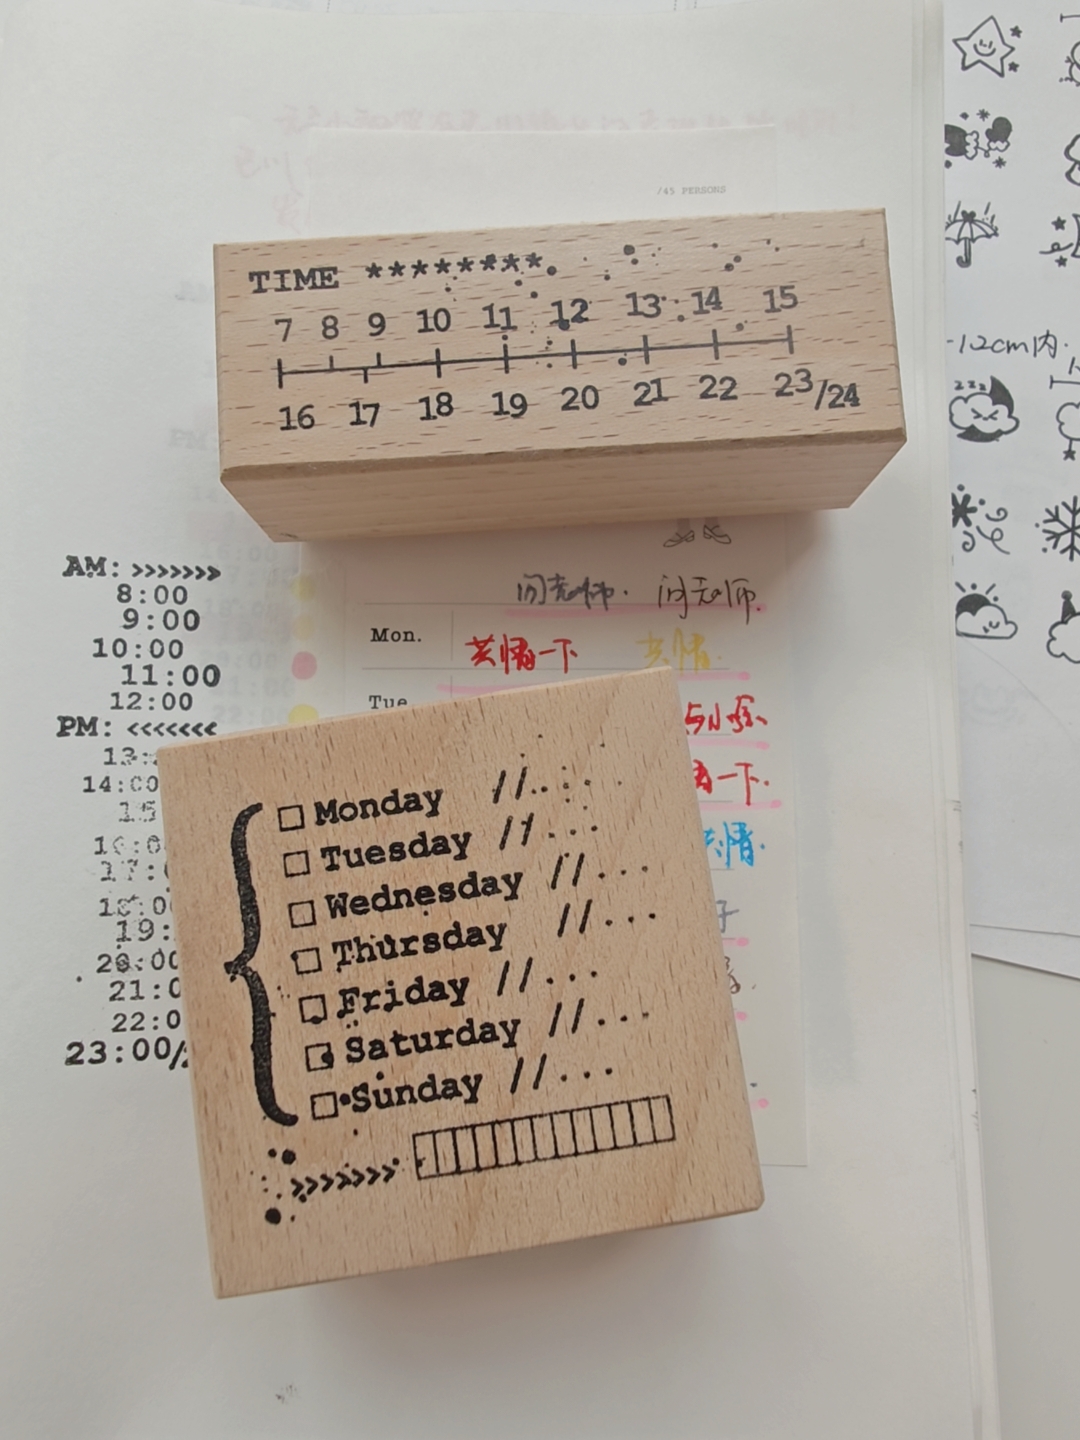 /45 PERSONS
TIME ********
7 8 9 10 11 12 13 14 15
16 17 18 19 20 21 22 23/24
-12cm内.
zzz
AM: >>>>>>>
8:00
9:00
10:00
11:00
12:00
PM: <<<<<<<
13:
14:00
15
16:0
17:
18:0
19:
20:00
21:0
22:0
23:00/
Mon.
共情一下 共情.
Tue
一下.
共情.
子
□ Monday //...
□ Tuesday //...
□ Wednesday //...
□ Thursday //...
□ Friday //...
□ Saturday //...
□ Sunday //...
>>>>>>>